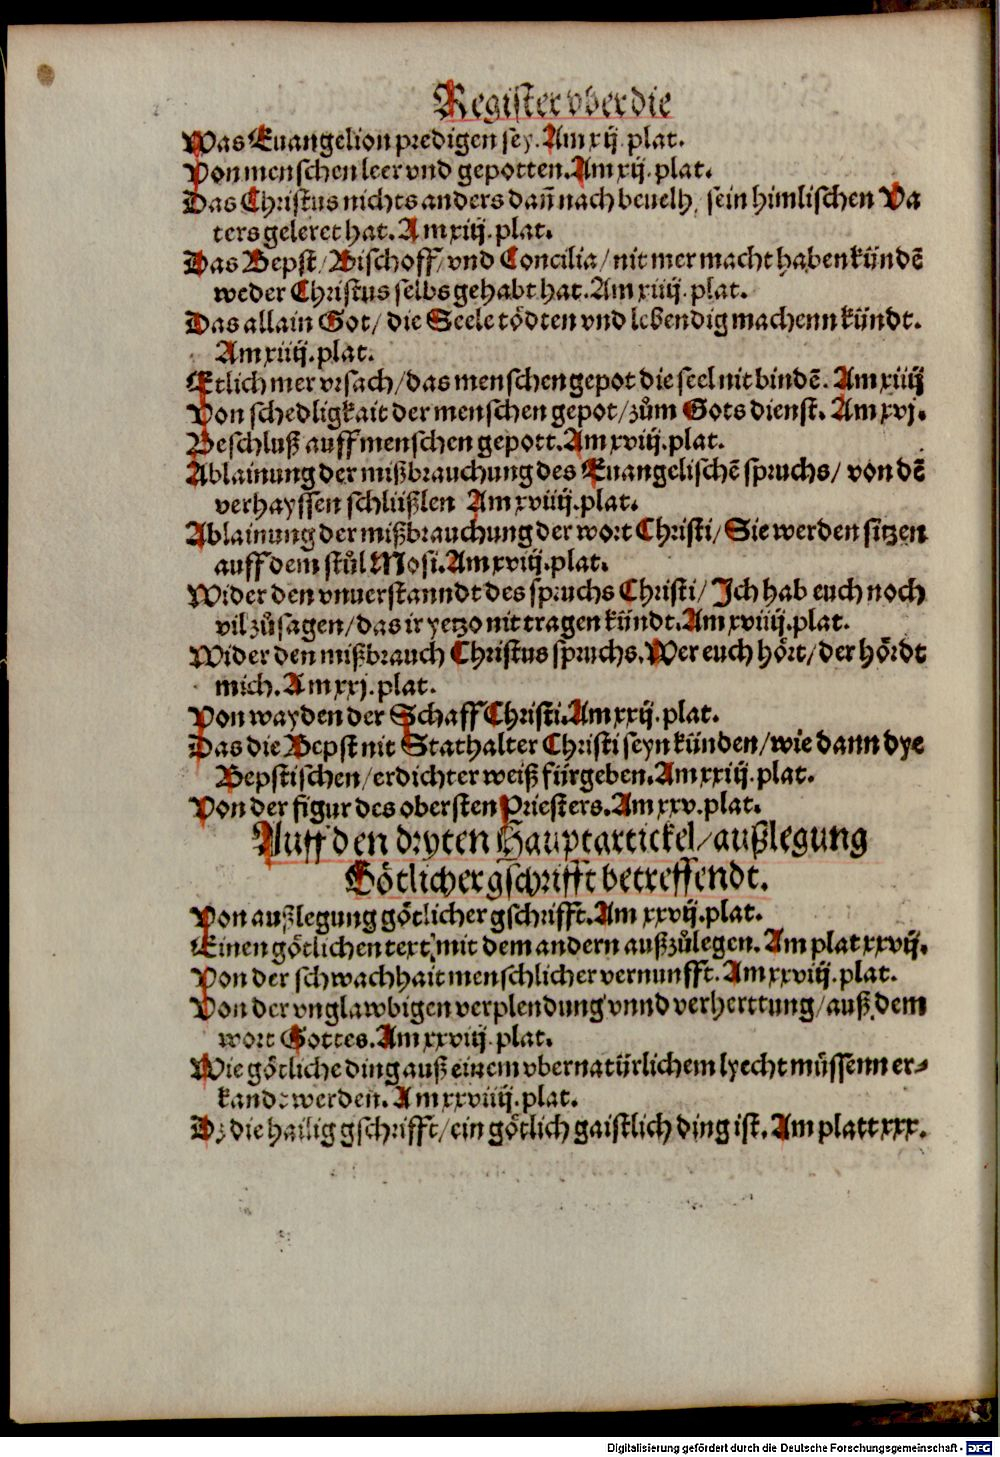 Register vber die
Was Euangelion predigen sey. Am xij. plat.
Von menschen leer vnd gepotten. Am xij. plat.
Das Christus nichts anders dañ nach beuelh, sein himlischen Va
ters geleret hat. Am xiij. plat.
Das Bepst/ Bischoff/ vnd Concilia/ nit mer macht haben kündē
weder Christus selbs gehabt hat. Am xiiij. plat.
Das allain Got/ die Seele tödten vnd lebendig machenn kündt.
Am xiiij. plat.
Etlich mer vrsach/ das menschen gepot die seel nit bindē. Am xiiij
Von schedligkait der menschen gepot/ zům Gots dienst. Am xvj.
Beschluß auff menschen gepott. Am xviij. plat.
Ablainung der mißbrauchung des Euangelischē spruchs/ von dē
verhayssen schlüßlen Am xviiij. plat.
Ablainung der mißbrauchung der wort Christi/ Sie werden sitzen
auff dem stůl Mosi. Am xviij. plat.
Wider den vnuerstanndt des spruchs Christi/ Ich hab euch noch
vil zů sagen/ das ir yetzo nit tragen kündt. Am xviiij. plat.
Wider den mißbrauch Christus spruchs. Wer euch hört/ der hördt
mich. Am xxj. plat.
Von wayden der Schaff Christi. Am xxij. plat.
Das die Bepst nit Stathalter Christi seyn künden/ wie dann dye
Bepstischen/ erdichter weiß fürgeben. Am xxiij. plat.
Von der figur des obersten Priesters. Am xxv. plat.
Auff den dryten Hauptartickel/ außlegung
Götlicher gschrifft betreffendt.
Von außlegung götlicher gschrifft. Am xxvij. plat.
Einen götlichen text, mit dem andern außzůlegen. Am plat xxvij.
Von der schwachhait menschlicher vernunfft. Am xxviij. plat.
Von der vnglawbigen verplendung vnnd verherttung/ auß dem
wort Gottes. Am xxviij. plat.
Wie götliche ding auß einem vbernatürlichem lyecht müssenn er⸗
kandt werden. Am xxviiij. plat.
Dz die hailig gschrifft/ ein götlich gaistlich ding ist. Am platt xxx.
Digitalisierung gefördert durch die Deutsche Forschungsgemeinschaft - DFG